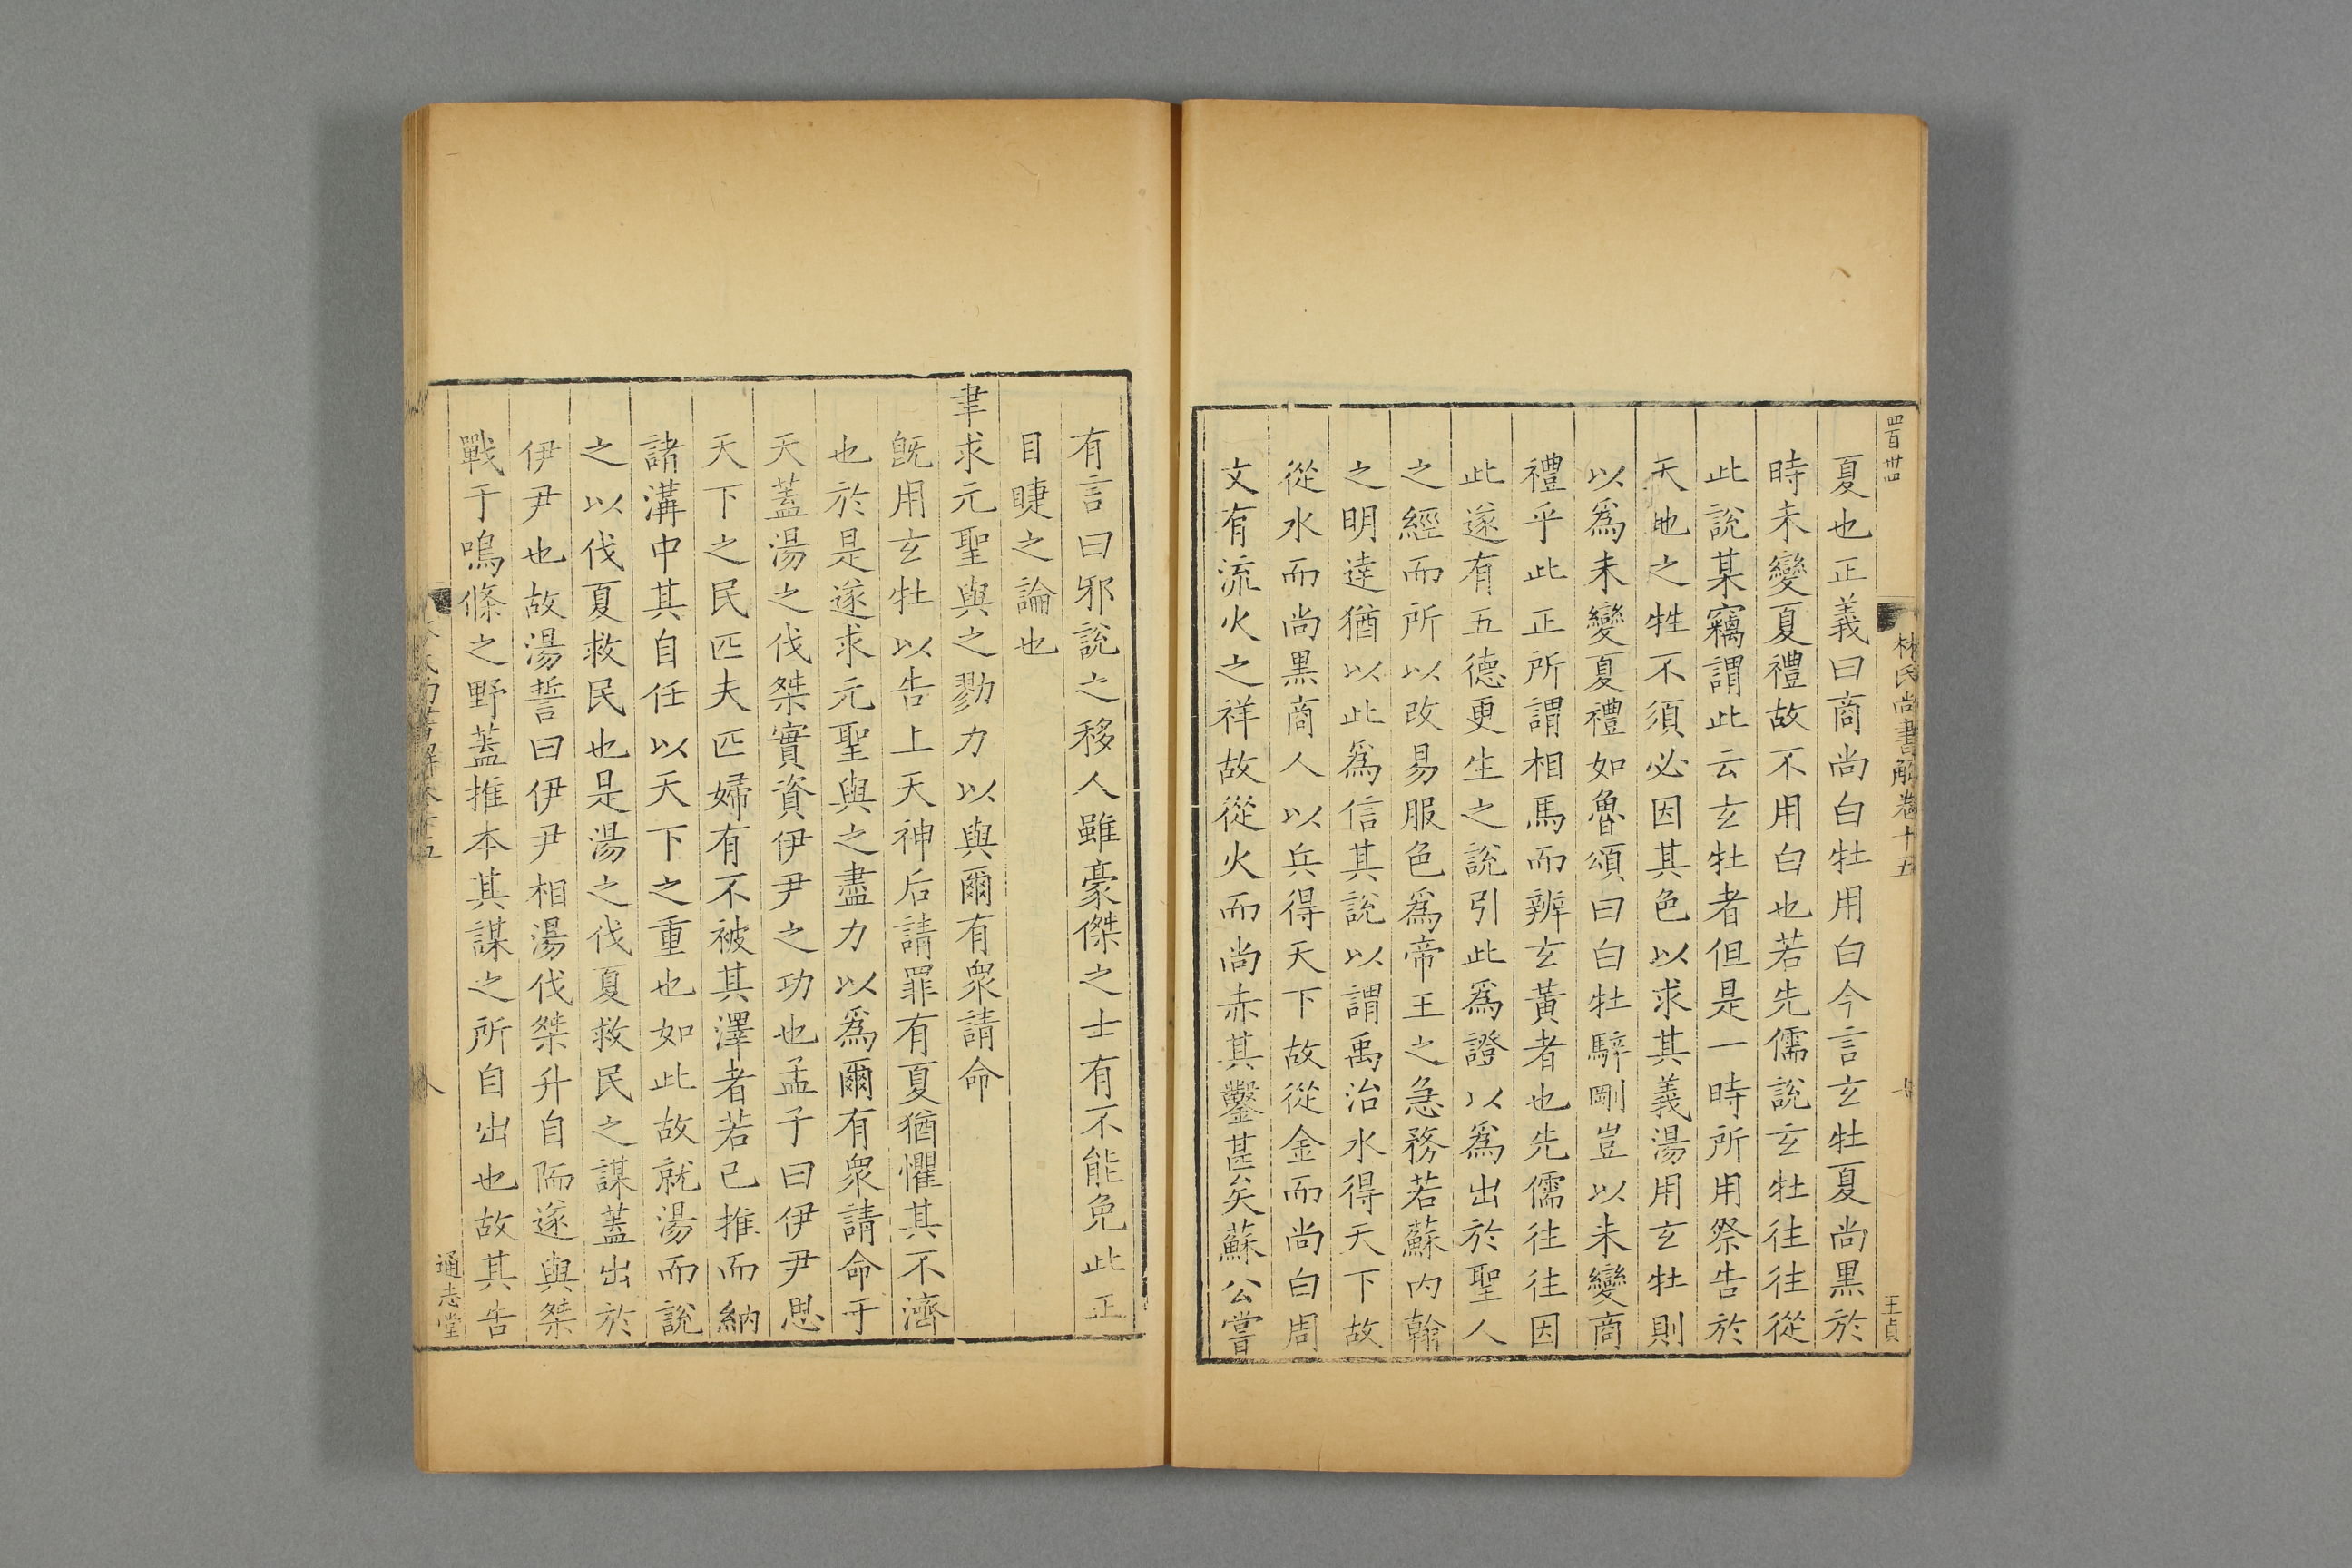 四百卅四
林氏尚書解卷十五
王貞
夏也正義曰商尚白牡用白今言玄牡夏尚黑於
時未變夏禮故不用白也若先儒說玄牡往往從
此說某竊謂此云玄牡者但是一時所用祭告於
天地之牲不須必因其色以求其義湯用玄牡則
以爲未變夏禮如魯頌曰白牡騂剛豈以未變商
禮乎此正所謂相馬而辨玄黃者也先儒往往因
此遂有五德更生之說引此爲證以爲出於聖人
之經而所以改易服色爲帝王之急務若蘇內翰
之明達猶以此爲信其說以謂禹治水得天下故
從水而尚黑商人以兵得天下故從金而尚白周
文有流火之祥故從火而尚赤其鑿甚矣蘇公嘗
有言曰邪說之移人雖豪傑之士有不能免此正
目睫之論也
聿求元聖與之勠力以與爾有衆請命
旣用玄牡以告上天神后請罪有夏猶懼其不濟
也於是遂求元聖與之盡力以爲爾有衆請命于
天蓋湯之伐桀實資伊尹之功也孟子曰伊尹思
天下之民匹夫匹婦有不被其澤者若已推而納
諸溝中其自任以天下之重也如此故就湯而說
之以伐夏救民也是湯之伐夏救民之謀蓋出於
伊尹也故湯誓曰伊尹相湯伐桀升自陑遂與桀
戰于鳴條之野蓋推本其謀之所自出也故其告
通志堂